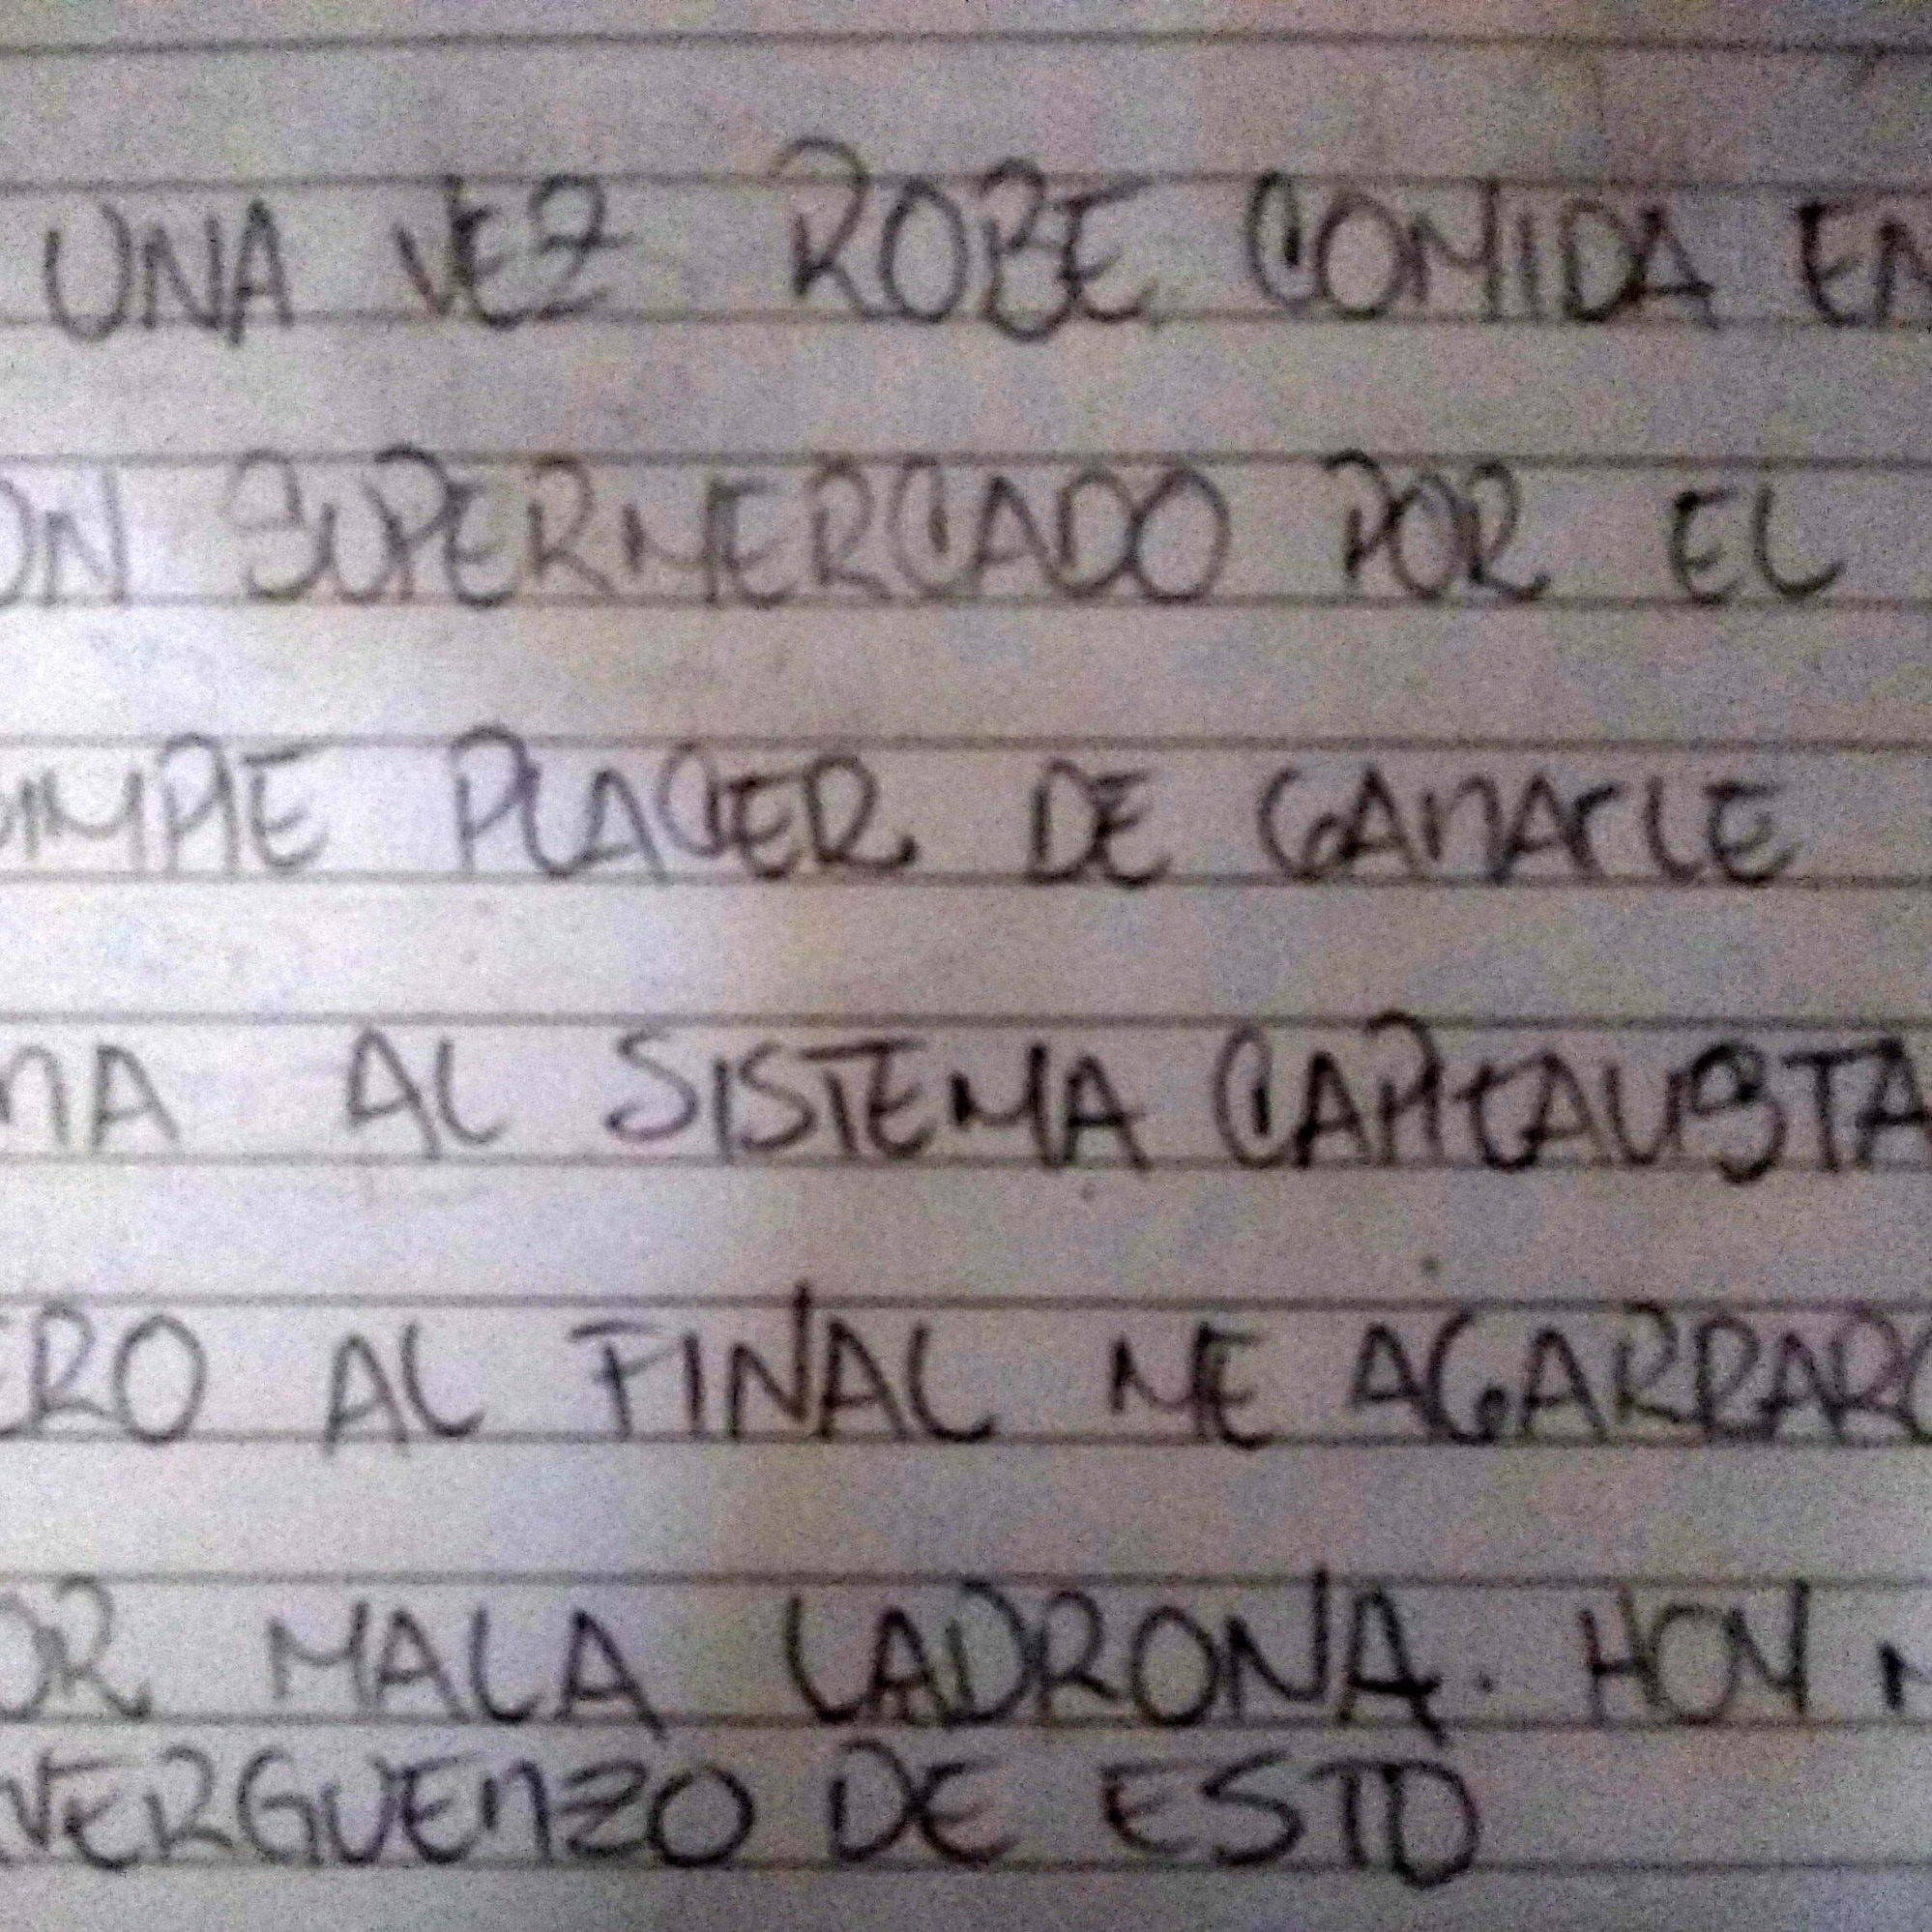 UNA VEZ ROBE COMIDA EN
UN SUPERMERCADO POR EL
SIMPLE PLACER DE GANARLE
UNA AL SISTEMA CAPITALISTA
PERO AL FINAL ME AGARRARO
POR MALA LADRONA. HOY
AVERGUENZO DE ESTO